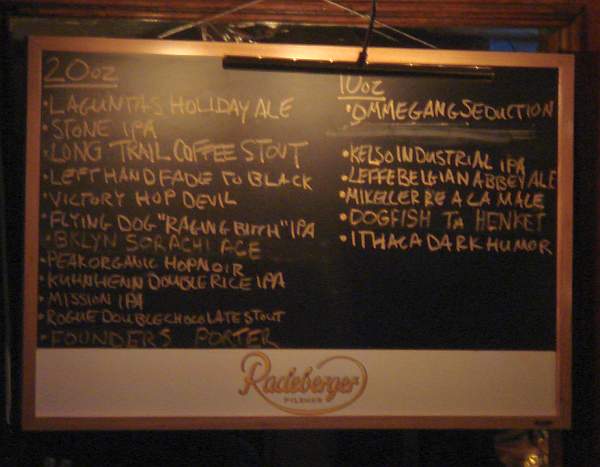 20oz
•LAGUNITAS HOLIDAY ALE
•STONE IPA
•LONG TRAIL COFFEE STOUT
•LEFT HAND FADE TO BLACK
•VICTORY HOP DEVIL
•FLYING DOG "RAGING BITCH" IPA
•BKLYN SORACHI ACE
•PEAK ORGANIC HOPNOIR
•KUHNHENN DOUBLE RICE IPA
•MISSION IPA
•ROGUE DOUBLE CHOCOLATE STOUT
•FOUNDERS PORTER
10oz
•OMMEGANG SEDUCTION
•KELSO INDUSTRIAL IPA
•LEFFE BELGIAN ABBEY ALE
•MIKELLER RE A LA MALE
•DOGFISH TA HENKET
•ITHACA DARK HUMOR
Radeberger
PILSNER